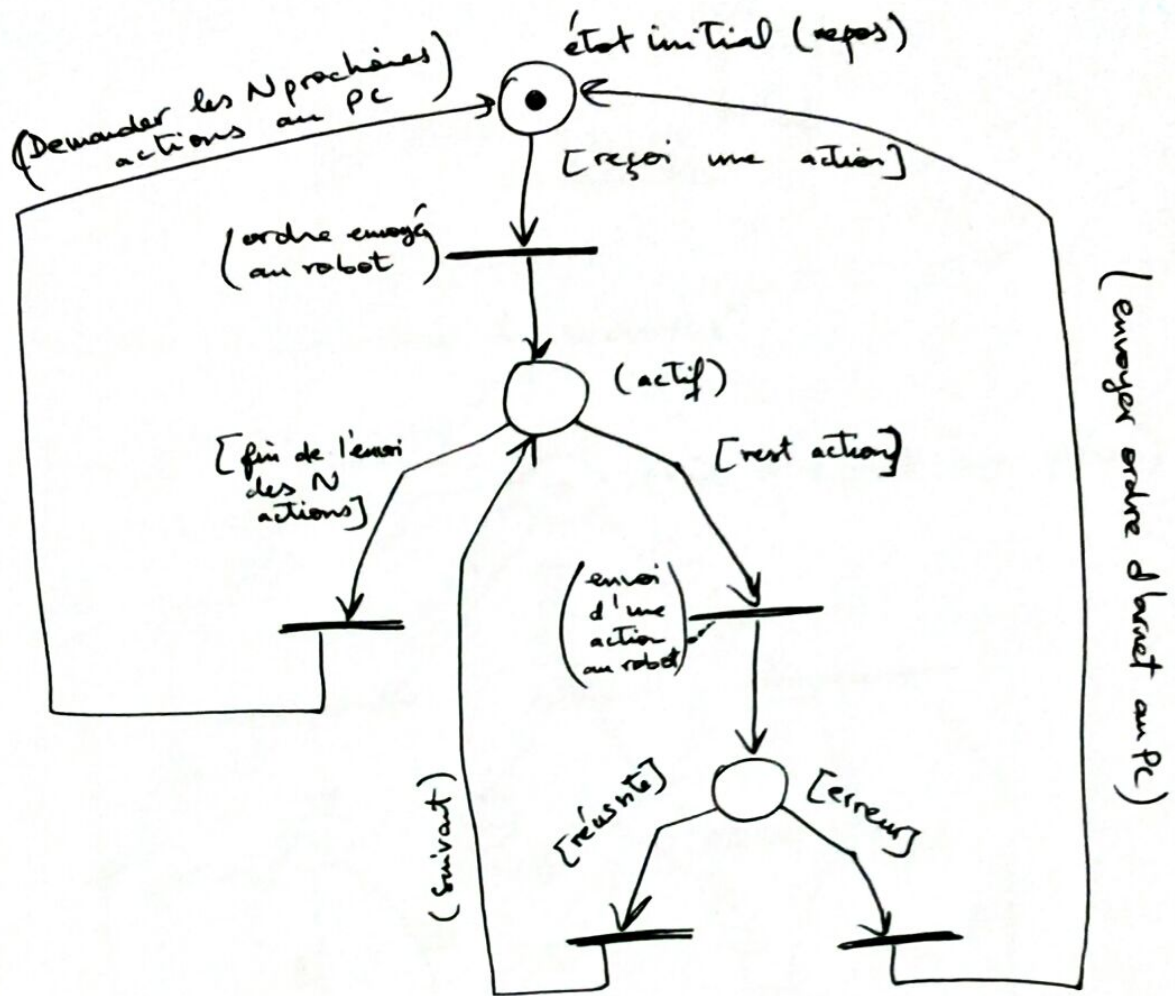 état initial (repos)
(Demander les N prochaines
actions au PC)
[reçoi une action]
(ordre envoyé
au robot)
(actif)
[fin de l'envoi
des N
actions]
[rest action]
(envoi
d'une
action
au robot)
(suivant)
[réussite]
[erreur]
(envoyer ordre d'arret au PC)